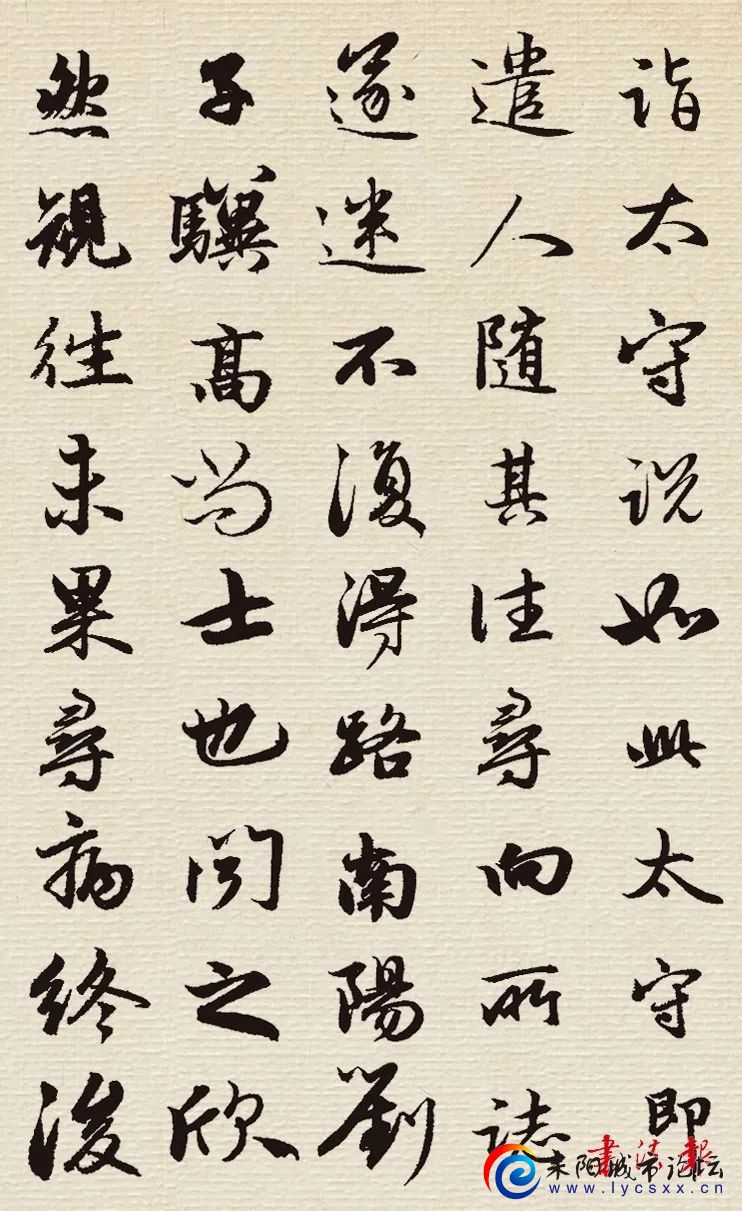 詣太守說如此太守即
遣人随其往尋向所誌
遂迷不復得路南陽劉
子驥高尚士也聞之欣
然規往未果尋病終後
書法報
耒阳城市论坛
www.lycsxx.cn